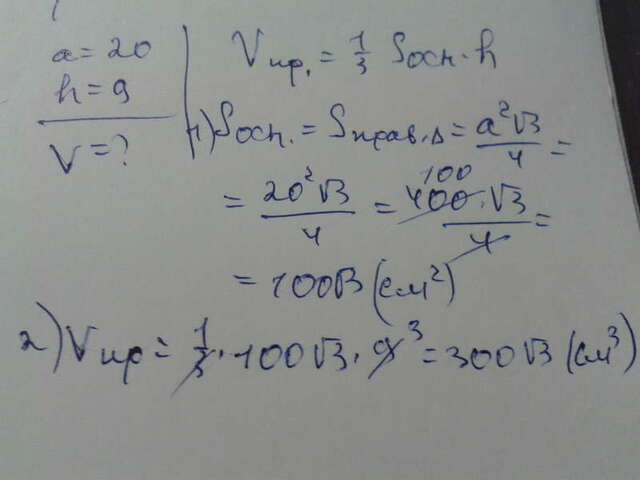 a = 20
h = 9
V = ?
Vпр. = 1/3 Sосн. · h
1) Sосн. = Sправ. Δ = a²√3/4 =
= 20²√3/4 = 400 · √3/4 =
100
= 100√3 (см²)
2) Vпр = 1/3 · 100√3 · 9 3 = 300√3 (см³)